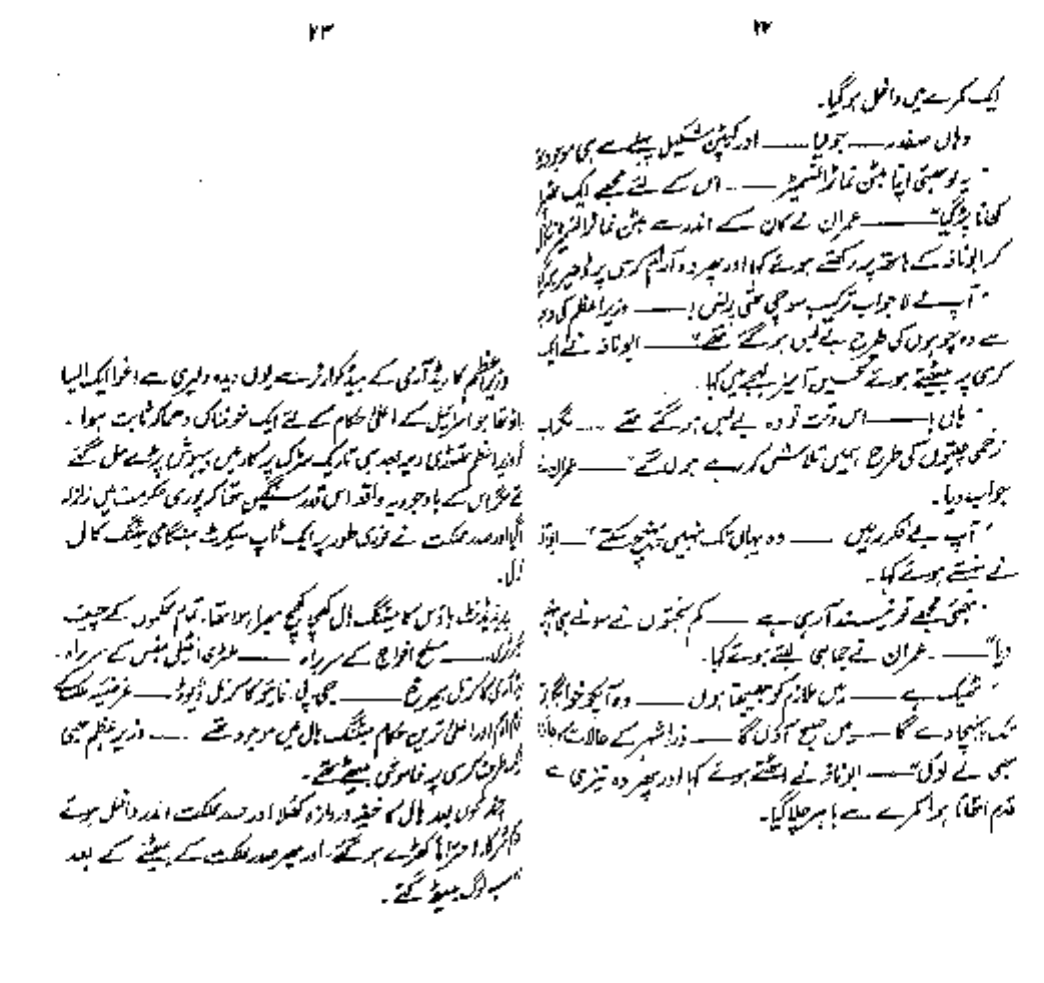 ۲۲
ایک کمرے میں داخل ہوگیا۔
وہاں صفدر —— جولیا —— اور کیپٹن شکیل پہلے سے ہی موجود
" یہ لو بھئی اپنا بٹن نما ٹرانسمیٹر —— اس کے لئے مجھے ایک
کھانا پڑگیا" —— عمران نے کان کے اندر سے بٹن نما ٹرانسمیٹر
کر ابوناؤ کے ہاتھ پر رکھتے ہوئے کہا اور پھر وہ آرام کرسی پر ڈھیر
" آپ نے لاجواب ترکیب سوچی تھی پرنس! —— وزیراعظم کی
سے وہ چوہوں کی طرح بے بس ہوگئے تھے" —— نے ایک
کرسی پر بیٹھتے ہوئے تحسین آمیز لہجے میں کہا۔
" ہاں! —— اس وقت تو وہ بے بس ہوگئے تھے ——
زخمی چیتوں کی طرح ہمیں تلاش کر رہے ہوں گے" —— عمران
جواب دیا۔
" آپ بے فکر رہیں —— وہ یہاں تک نہیں پہنچ سکتے" ——
نے ہنستے ہوئے کہا۔
" بھئی مجھے تو نیند آرہی ہے —— کم بختوں نے سونے ہی
دیا" —— عمران نے جماہی لیتے ہوئے کہا۔
" ٹھیک ہے —— میں ملازم کو بھیجتا ہوں —— وہ آپکو خوابگاہ
تک پہنچا دے گا —— میں صبح آؤں گا —— ذرا شہر کے حالات
بھی لے لوں" —— نے اٹھتے ہوئے کہا اور پھر وہ تیزی سے
قدم اٹھاتا ہوا کمرے سے باہر چلا گیا۔
۲۳
وزیراعظم کا ریڈ آرمی کے ہیڈکوارٹر سے یوں دیدہ دلیری سے اغوا ایک ایسا
تھا جو اسرائیل کے اعلیٰ حکام کے لئے ایک خوفناک دھماکہ ثابت ہوا۔
وزیراعظم تھوڑی دیر بعد ہی تاریک سڑک پر کار میں بیہوش پڑے مل گئے
تھے مگر اس کے باوجود یہ واقعہ اس قدر سنگین تھا کہ پوری حکومت میں زلزلہ
آگیا اور صدر مملکت نے فوری طور پر ایک ٹاپ سیکرٹ ہنگامی میٹنگ کال
کرلی۔
پریذیڈنٹ ہاؤس کا میٹنگ ہال کھچا کھچ بھرا ہوا تھا۔ تمام محکموں کے چیف
سیکرٹری —— مسلح افواج کے سربراہ —— ملٹری انٹیلی جنس کے سربراہ۔
ریڈ آرمی کا کرنل —— جی۔پی۔ فائیو کا کرنل ڈیوڈ —— غرضیکہ مملکت
اہم اور اعلیٰ ترین حکام میٹنگ ہال میں موجود تھے —— وزیراعظم بھی
طرف کرسی پر خاموش بیٹھے تھے۔
چند لمحوں بعد ہال کا خفیہ دروازہ کھلا اور صدر مملکت اندر داخل ہوئے
احتراماً کھڑے ہوگئے۔ اور پھر صدر مملکت کے بیٹھنے کے بعد
سب لوگ بیٹھ گئے۔